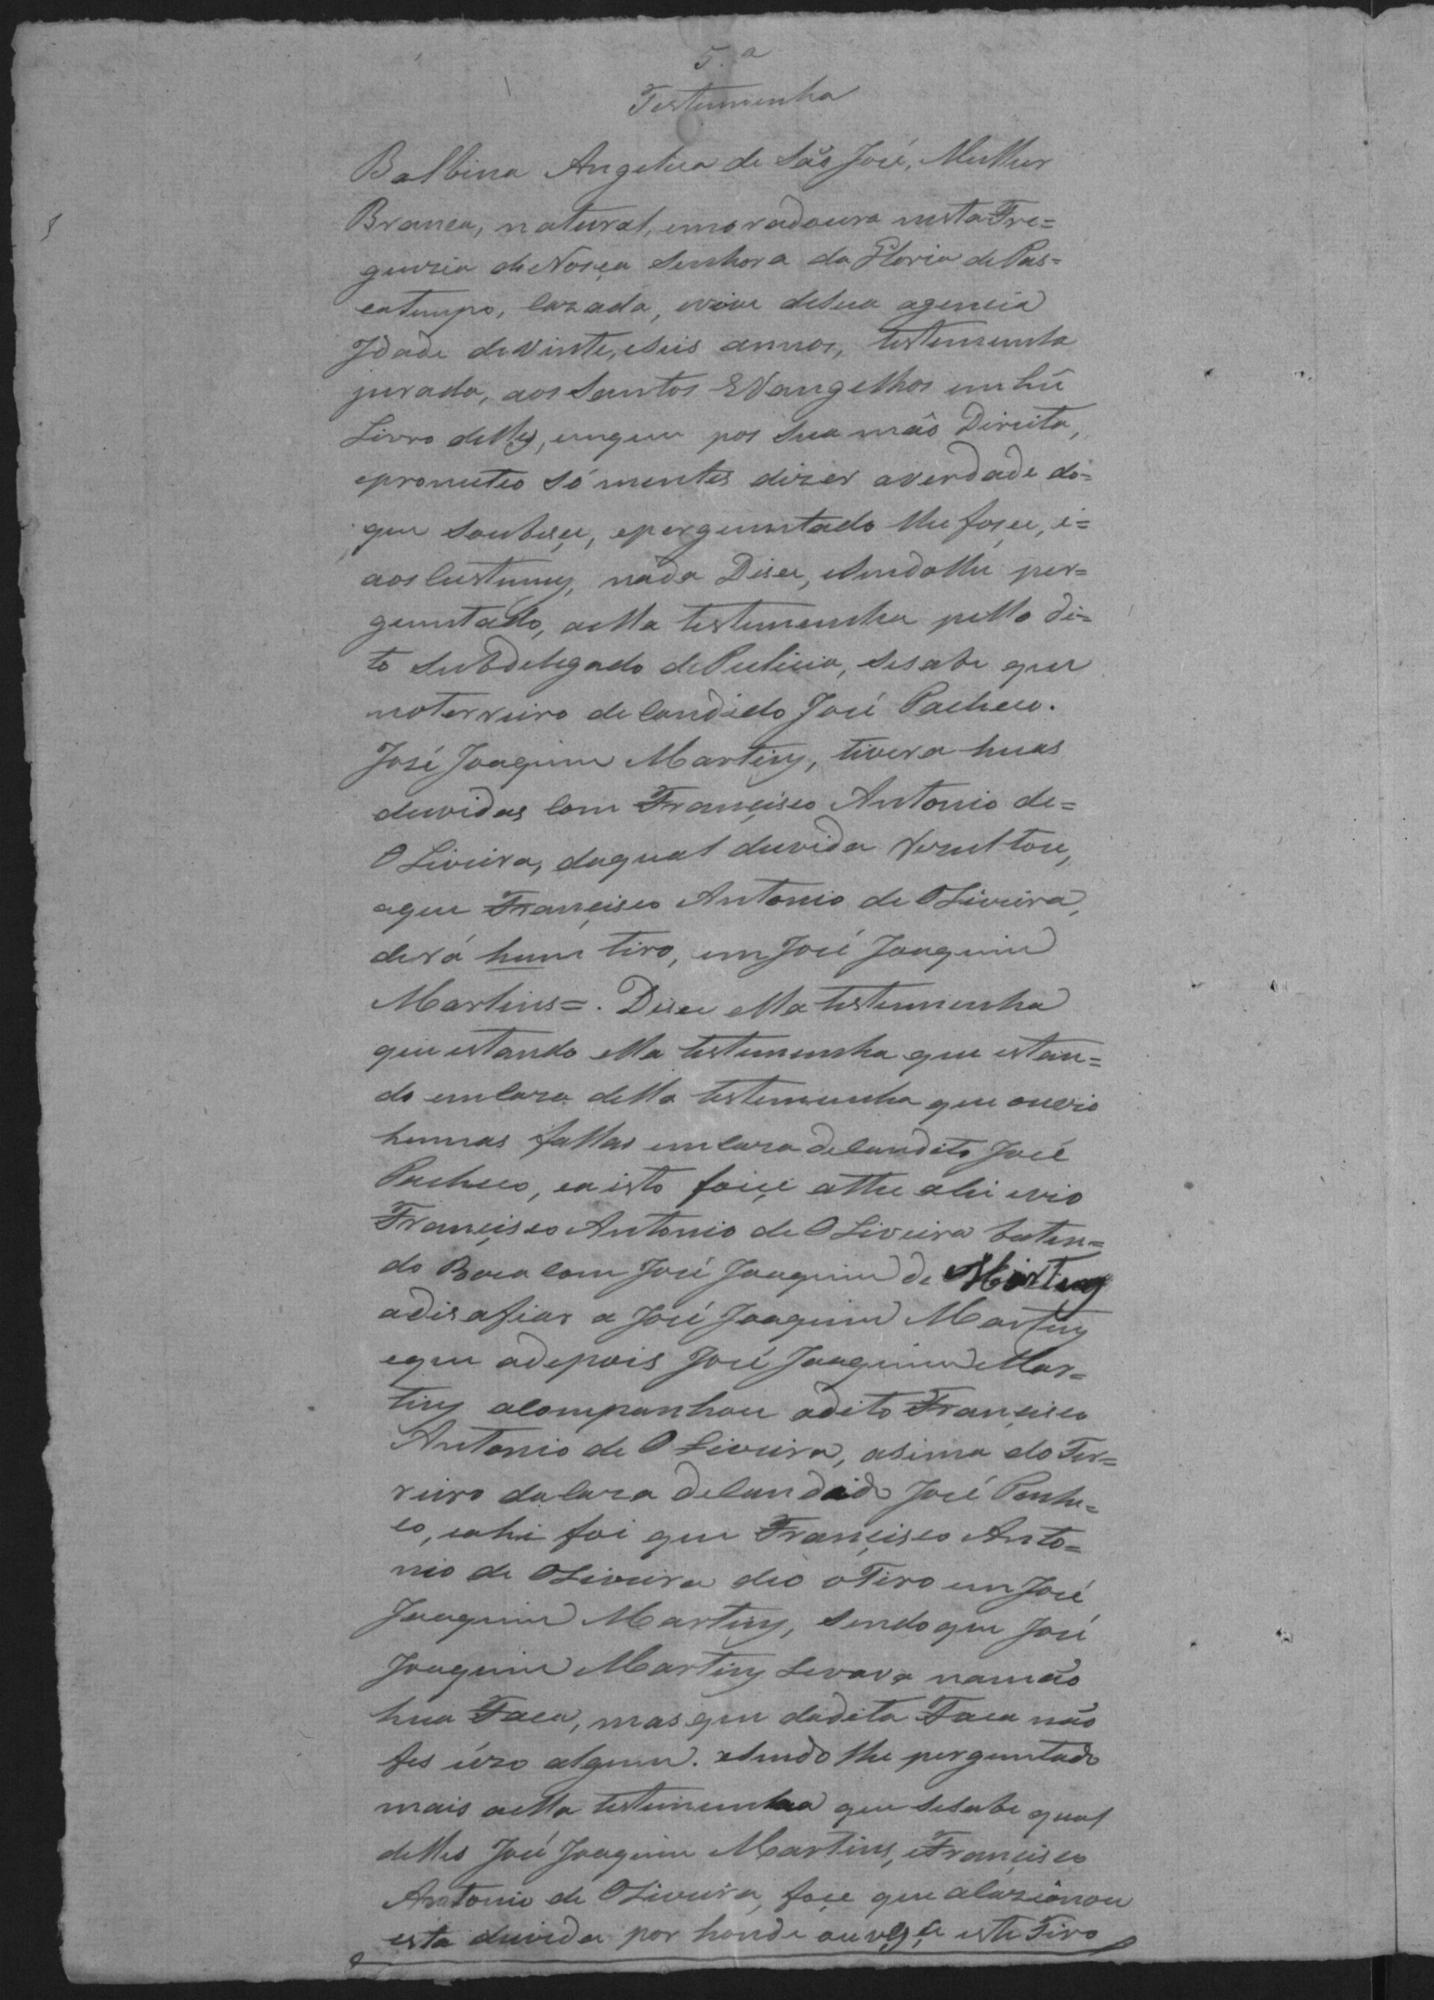 5.a
Testemunha
Balbina Angelica de São José, Mulher
Branca, natural, emoradoura nesta Fre=
guezia de Noséa Senhora da Gloria de Pas=
catempo, Cazada, evive desua agencia
Idade devinte, eseis annos, testemunha
jurada, aos Santos Evangelhos em hú
Livro delles, emque pos Sua mão Direita,
eprometeo Só mentes dizer averdade do=
que soubeçe, eperguntado lhe foçe, i=
aos Custumes, nada Dise, esendolhe per=
guntado, aella testemunha pello di=
to Subdelegado dePulicia, sesabe que
noterreiro de Candido José Pacheco.
José Joaquim Martins, tivera huas
duvidas Com Françisco Antonio de=
OLiveira, daqual duvida Rezultou,
aque Françisco Antonio de OLiveira,
derá hum tiro, em José Joaquim
Martins=. Dise ella testemunha
que estando ella testemunha que estan=
do emCaza della testemunha que ouvio
humas fallas emCaza deCandito José
Pacheco, eaisto foiçe athe ahi evio
Françisco Antonio de OLiveira baten=
do Boca Com José Joaquim de Martins
adisafiar a José Joaquim Martins
eque adepois José Joaquim Mar=
tins aCompanhou adito Françisco
Antonio de OLiveira, asima do Ter=
reiro daCaza deCandido José Pache=
co, eahi foi que Françisco Anto=
nio de OLiveira deo oTiro em José
Joaquim Martins, Sendo que José
Joaquim Martins Levava namão
hua Faca, mas que dadita Faca não
fes uzo algum. eSendo lhe perguntado
mais aella testemunha que seSabe qual
delles José Joaquim Martins, eFrançisco
Antonio de OLiveira, foçe que aCazionou
esta duvida por honde ouveçe este Tiro